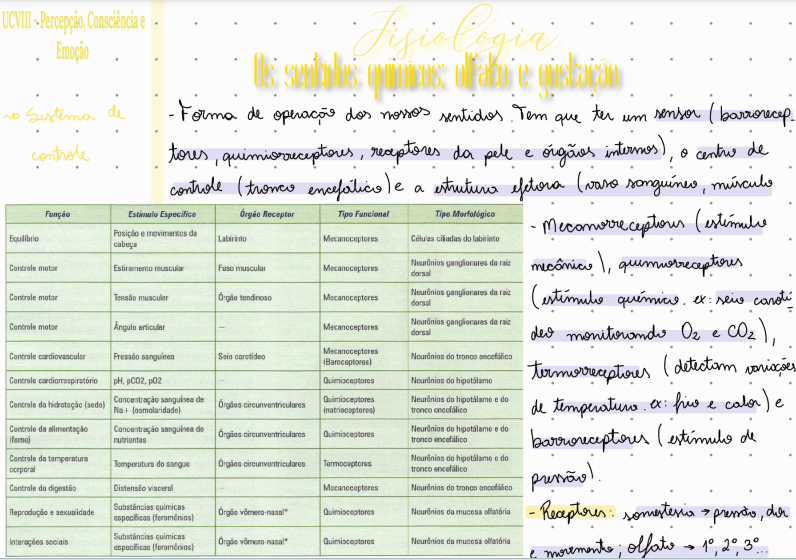 UCVIII - Percepção, Consciência e
Emoção
Fisiologia
Os sentidos químicos: olfato e gustação
~o Sistema de
controle
- Forma de operação dos nossos sentidos. Tem que ter um sensor (barrorecep-
tores, quimiorreceptores, receptores da pele e órgãos internos), o centro de
controle (tronco encefálico) e a estrutura efetora (vaso sanguíneo, músculo
Função Estímulo Específico Órgão Receptor Tipo Funcional Tipo Morfológico
Equilíbrio Posição e movimentos da cabeça Labirinto Mecanoceptores Células ciliadas do labirinto
Controle motor Estiramento muscular Fuso muscular Mecanoceptores Neurônios ganglionares da raiz dorsal
Controle motor Tensão muscular Órgão tendinoso Mecanoceptores Neurônios ganglionares da raiz dorsal
Controle motor Ângulo articular – Mecanoceptores Neurônios ganglionares da raiz dorsal
Controle cardiovascular Pressão sanguínea Seio carotídeo Mecanoceptores (Baroceptores) Neurônios do tronco encefálico
Controle cardiorrespiratório pH, pCO2, pO2 – Quimioceptores Neurônios do hipotálamo
Controle da hidratação (sede) Concentração sanguínea de Na+ (osmolaridade) Órgãos circunventriculares Quimioceptores (natrioceptores) Neurônios do hipotálamo e do tronco encefálico
Controle da alimentação (fome) Concentração sanguínea de nutrientes Órgãos circunventriculares Quimioceptores Neurônios do hipotálamo e do tronco encefálico
Controle da temperatura corporal Temperatura do sangue Órgãos circunventriculares Termoceptores Neurônios do hipotálamo e do tronco encefálico
Controle da digestão Distensão visceral – Mecanoceptores Neurônios do tronco encefálico
Reprodução e sexualidade Substâncias químicas específicas (feromônios) Órgão vômero-nasal* Quimioceptores Neurônios da mucosa olfatória
Interações sociais Substâncias químicas específicas (feromônios) Órgão vômero-nasal* Quimioceptores Neurônios da mucosa olfatória
- Mecanorreceptores (estímulo
mecânico), quimiorreceptores
(estímulo químico. ex: seio caroti-
deo monitorando O2 e CO2),
termorreceptores (detectam variações
de temperatura. ex: frio e calor) e
barroreceptores (estímulo de
pressão).
- Receptores: somestesia → pressão, dor
e movimento; olfato → 1º, 2º 3º...